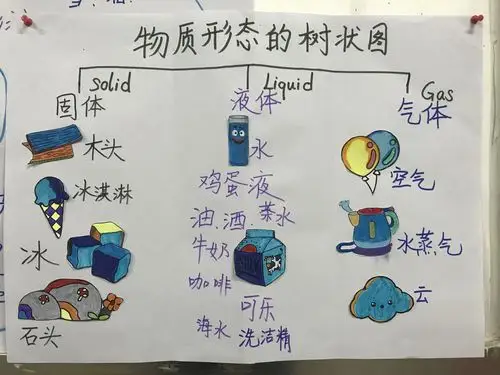 物质形态的树状图
Solid Liquid Gas
固体 液体 气体
木头
冰淇淋
冰
石头
水
鸡蛋液
油、酒 茶水
牛奶
咖啡
可乐
海水 洗洁精
空气
水蒸气
云